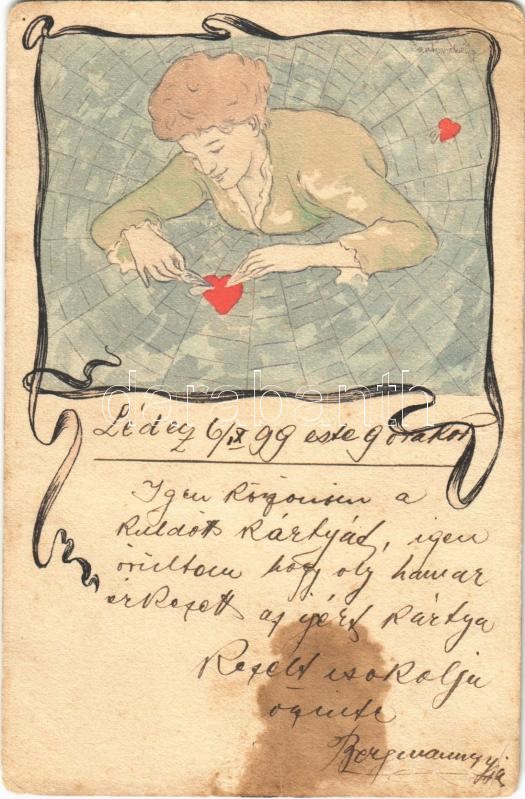 Lédecz 6/IX 99 este 9 órakor
Igen köszönöm a
küldött kártyát, igen
örültem hogy oly hamar
érkezett az igért kártya
Kezeit csokolja
őszinte
Bergmann
darabanth